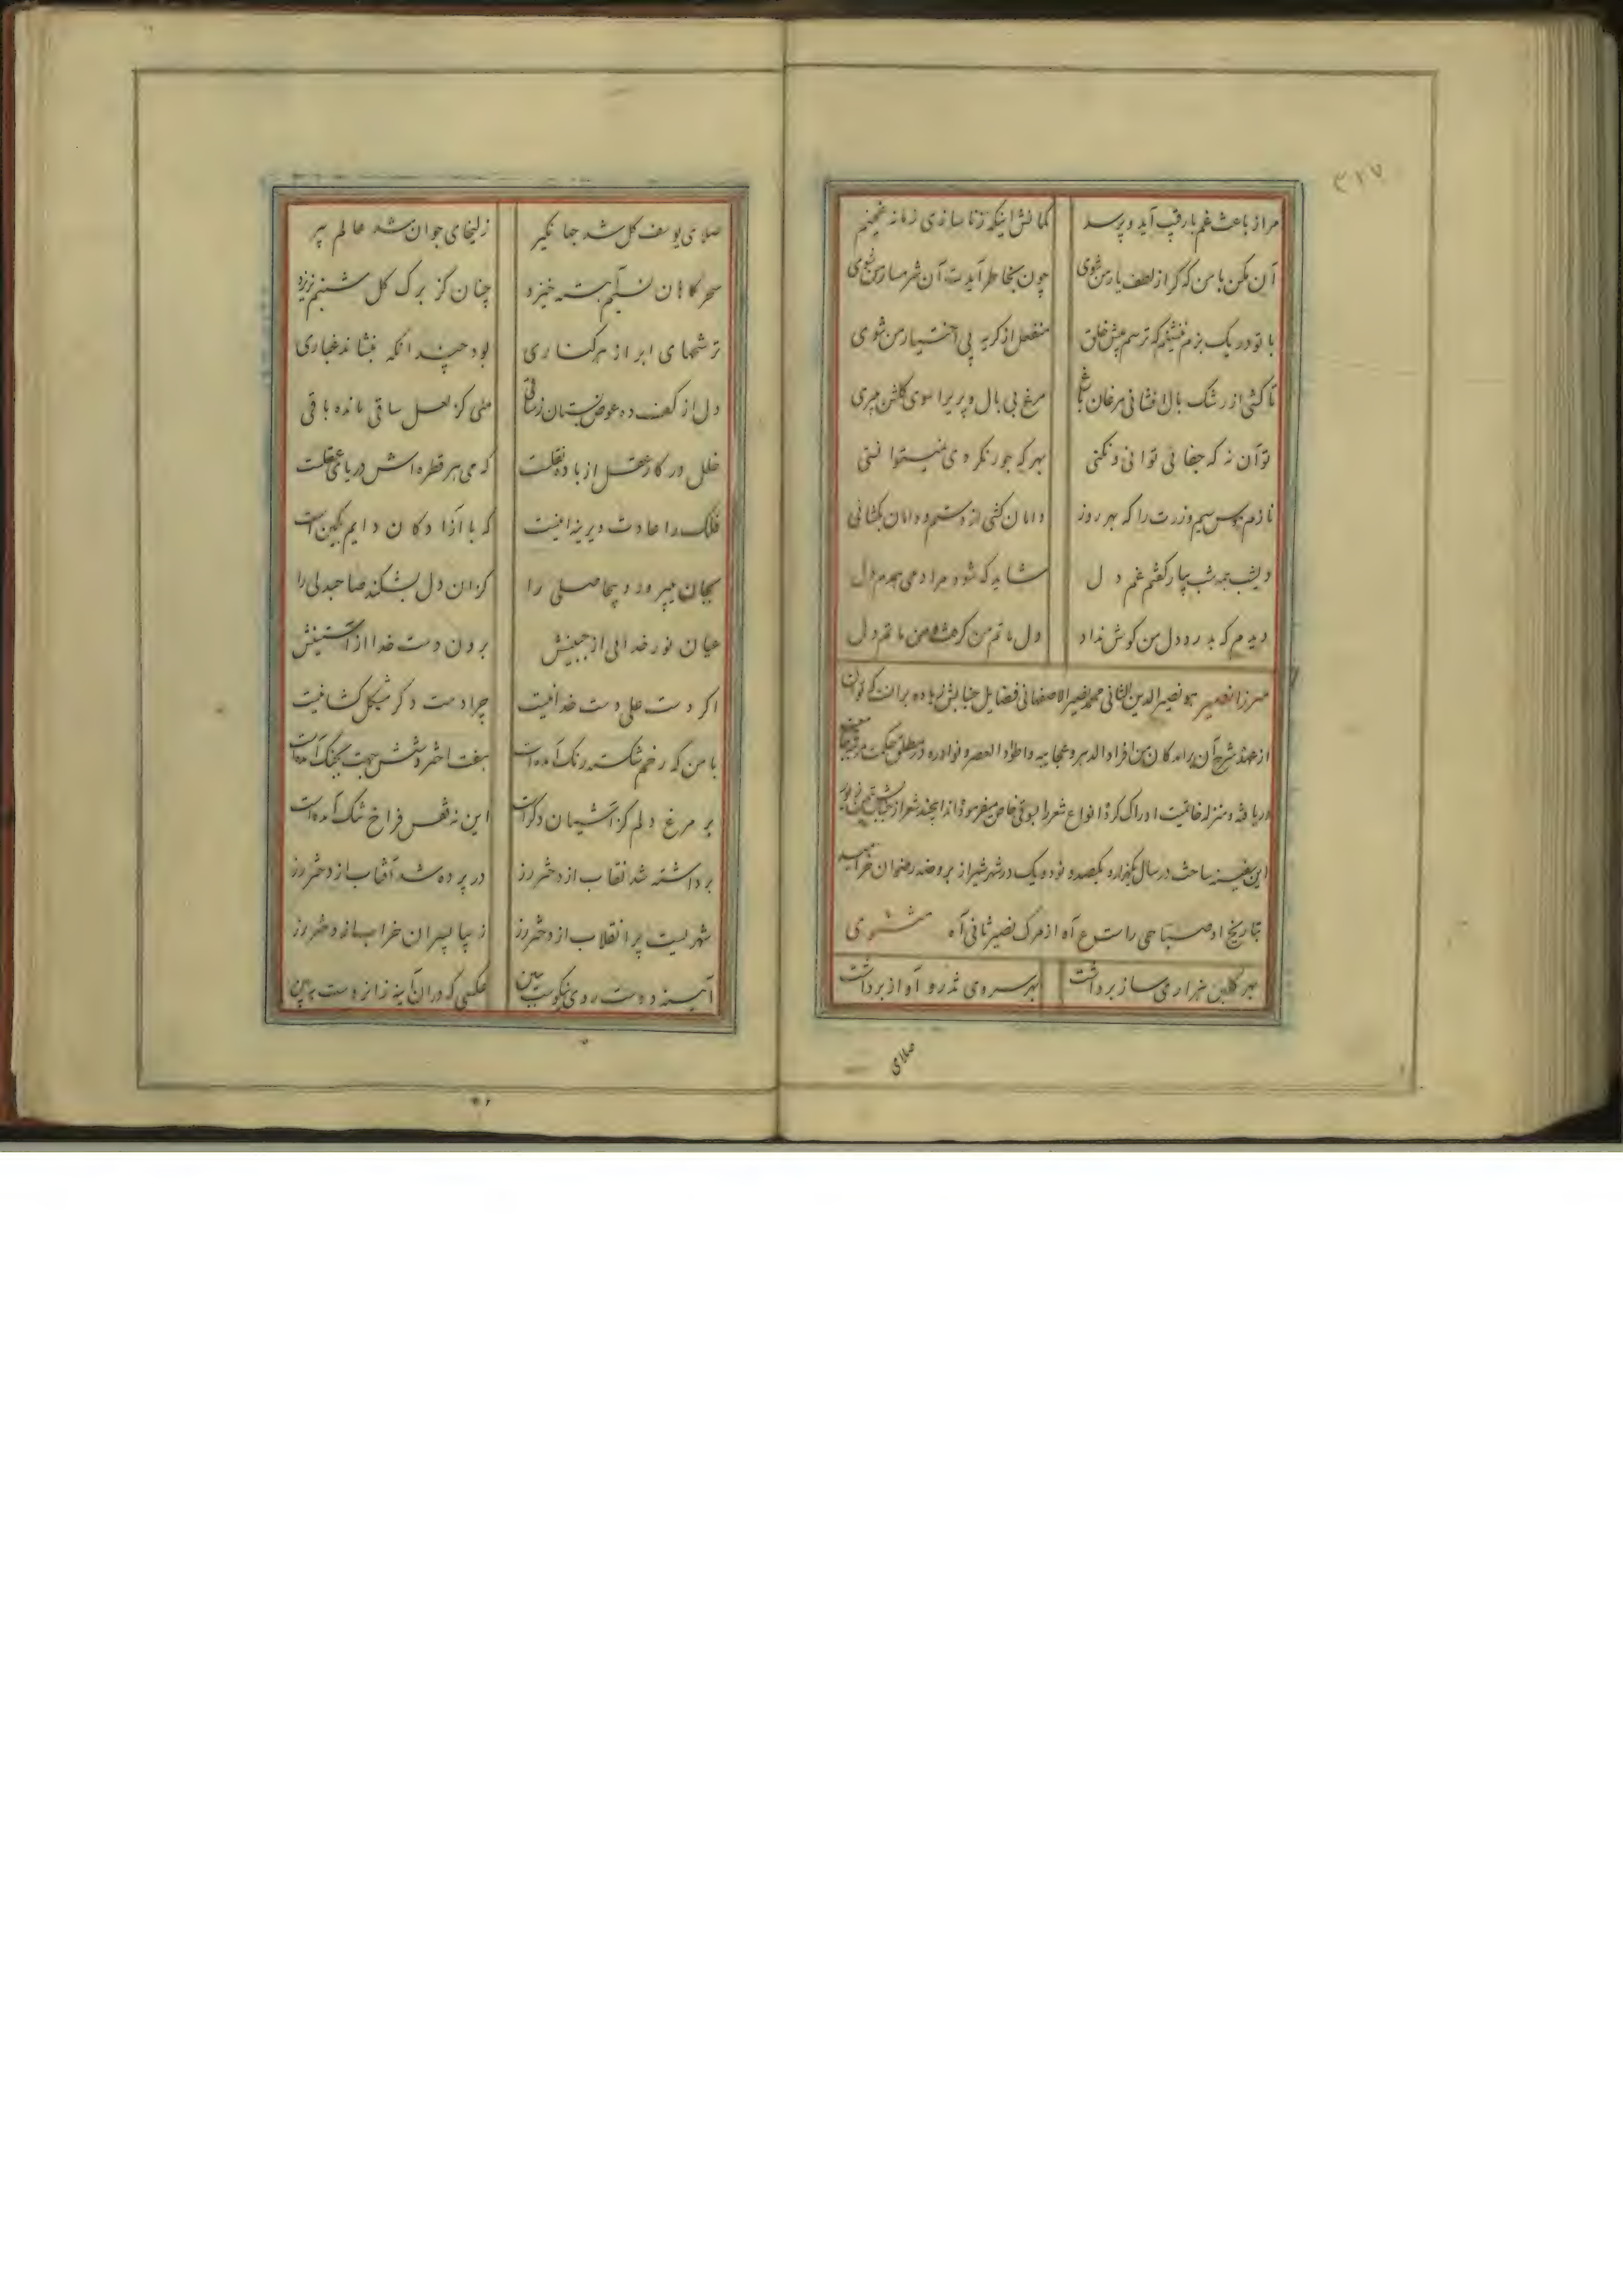 ۳۱۷
مرا از باعث غم با رقیب آید و پرسد کمالش اینکه زنا سازی زمانه غمینم
آن مکن با من که کر از لطف یار من شوی چون بخاطر آیدت آن شرمسار من شوی
با تو در یک بزم ننشینم که ترسم پیش خلق منفعل از کریه بی اختیار من شوی
تا کشی از رشک بال افشانی مرغان باغ مرغ بی بال و پر را سوی کلشن میبری
تو آن نه که جفائی توانی و نکنی بهر که جور نکرده ی نمیتوانستی
نازم هوس سیم و زرت را که هر روز دامان کشی از دستم و دامان بکشائی
دیشب همه شب بیار کفتم غم دل شاید که شود مرا دمی همدم دل
دیدم که بدرد دل من کوش نداد دل ماتم من کرفت و من ماتم دل
میرزا نصیر هو نصیرالدین الثانی محمد نصیر الاصفهانی فضایل جنابش زیاده بر آنست که توان
از عهده شرح آن برآمد کان من افراد الدهر و عجایبه و اطواد العصر و نوادره در مطلق حکمت مرتبه
دریافته و منزله خاقیت ادراک کرده انواع شعر را بسوقی خاص میفرموده اند این چند شعر از
این سفینه ساخت در سال یکهزار و یکصد و نود و یک در شهر شیراز بروضه رضوان خرامید
تاریخ او صباحی راست ع آه از مرک نصیر ثانی آه مثنوی
بهر کلبن هزاری ساز برداشت بهر سروی تذرو آواز برداشت
صلای
صلای یوسف کل شد جهانکیر زلیخای جوان شد عالم پیر
سحرکاهان نسیم آهسته خیزد چنان کز برک کل شبنم نریزد
ترشحهای ابر از هر کناری بود چندانکه بنشاند غباری
دل از کف ده عوض بستان ز ساقی ملی کز لعل ساقی مانده باقی
خلل در کار عقل از باده نقلست که می هر قطره اش دریای عقلست
فلک را عادت دیرینه اینست که با آزادکان دایم بکین است
بجان میپرورد بیحاصلی را کزان دل بشکند صاحبدلی را
عیان نور خدائی از جبینش برون دست خدا از آستینش
اکر دست علی دست خدا نیست چرا دست دکر مشکل کشا نیست
با من که رخم شکسته رنک آمده است هفت اختر و شش جهت بجنک آمده است
بر مرغ دلم کز آشیان دکر است این نه قفس فراخ تنک آمده است
برداشته شد نقاب از دختر رز در پرده شد آفتاب از دختر رز
شهریست پر انقلاب از دختر رز زیبا پسران خراب از دختر رز
آیینه دست روی نیکوست ببین عکسی که در آن آینه زان روست ببین